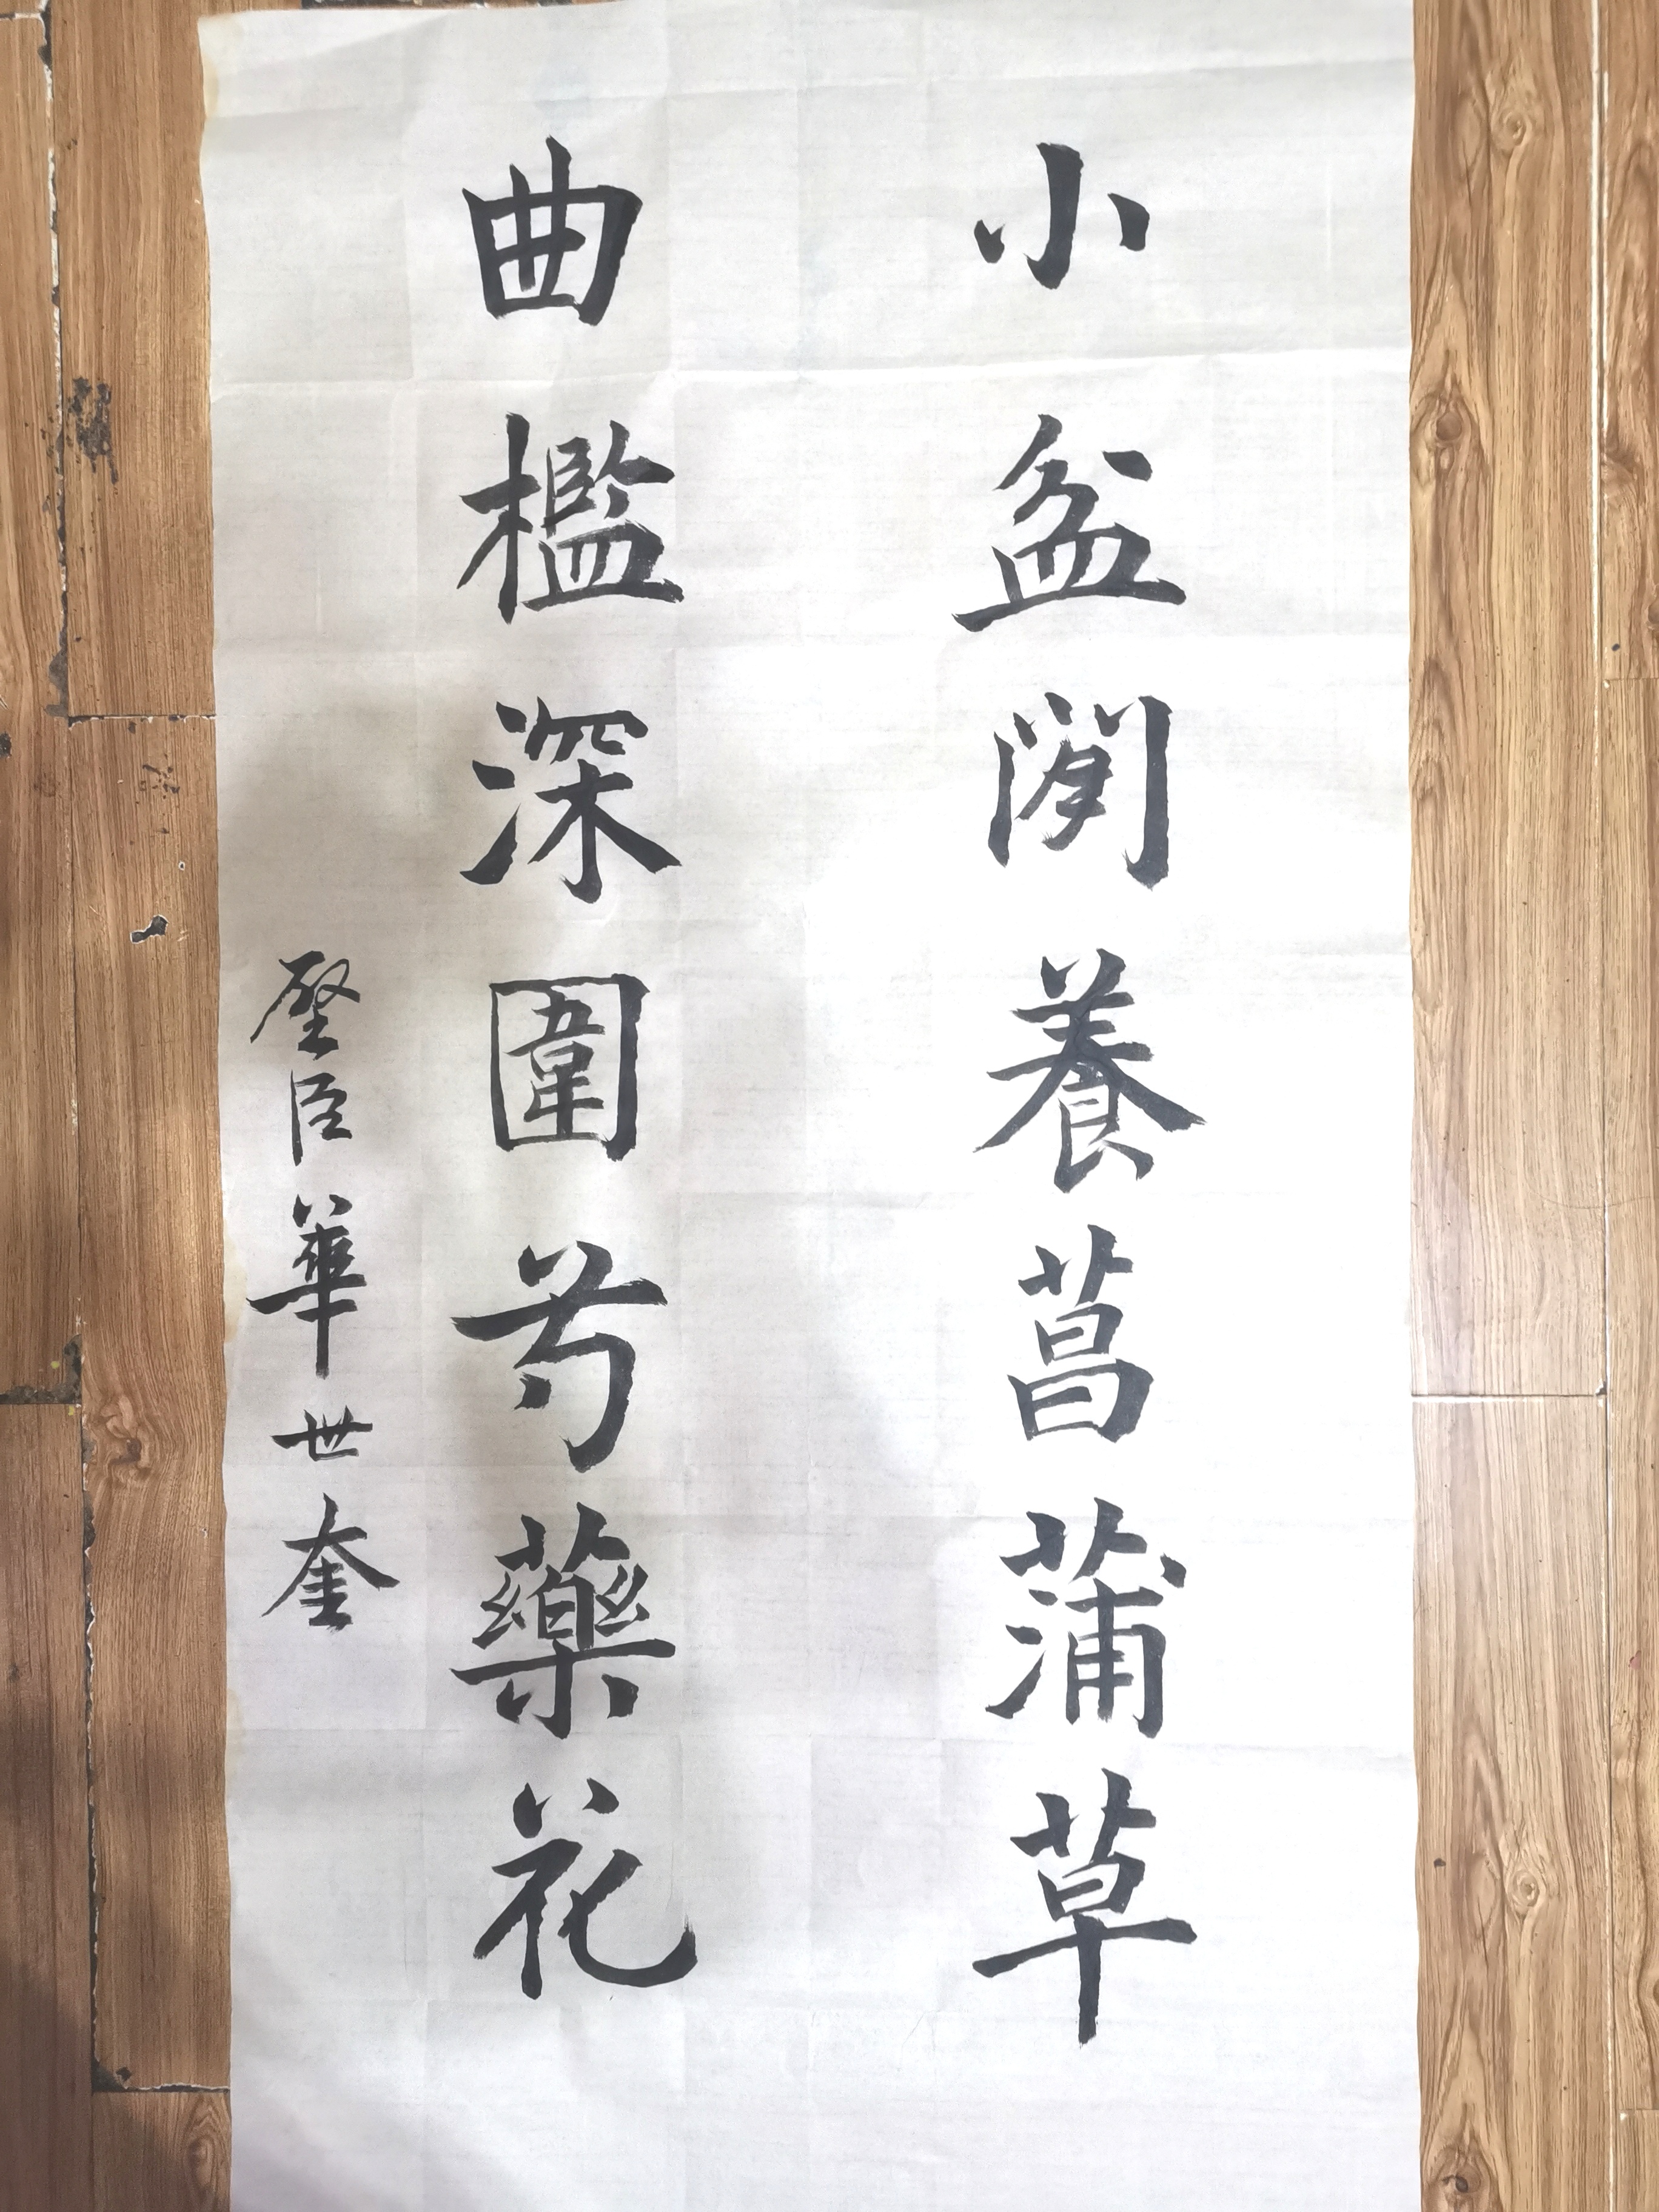 小盆閒養菖蒲草
曲檻深圍芍藥花
臣華世奎